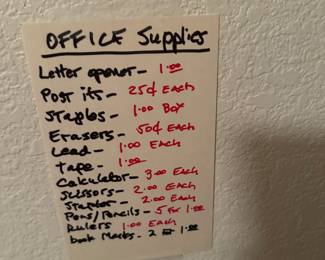 OFFICE Supplies
Letter opener - 1.00
Post its - 25¢ Each
Staples - 1.00 Box
Erasers - 50¢ Each
Lead - 1.00 Each
Tape - 1.00
Calculator - 3.00 Each
Scissors - 2.00 Each
Stapler - 2.00 Each
Pens/Pencils - 5 for 1.00
Rulers 1.00 Each
book Marks - 2 for 1.00